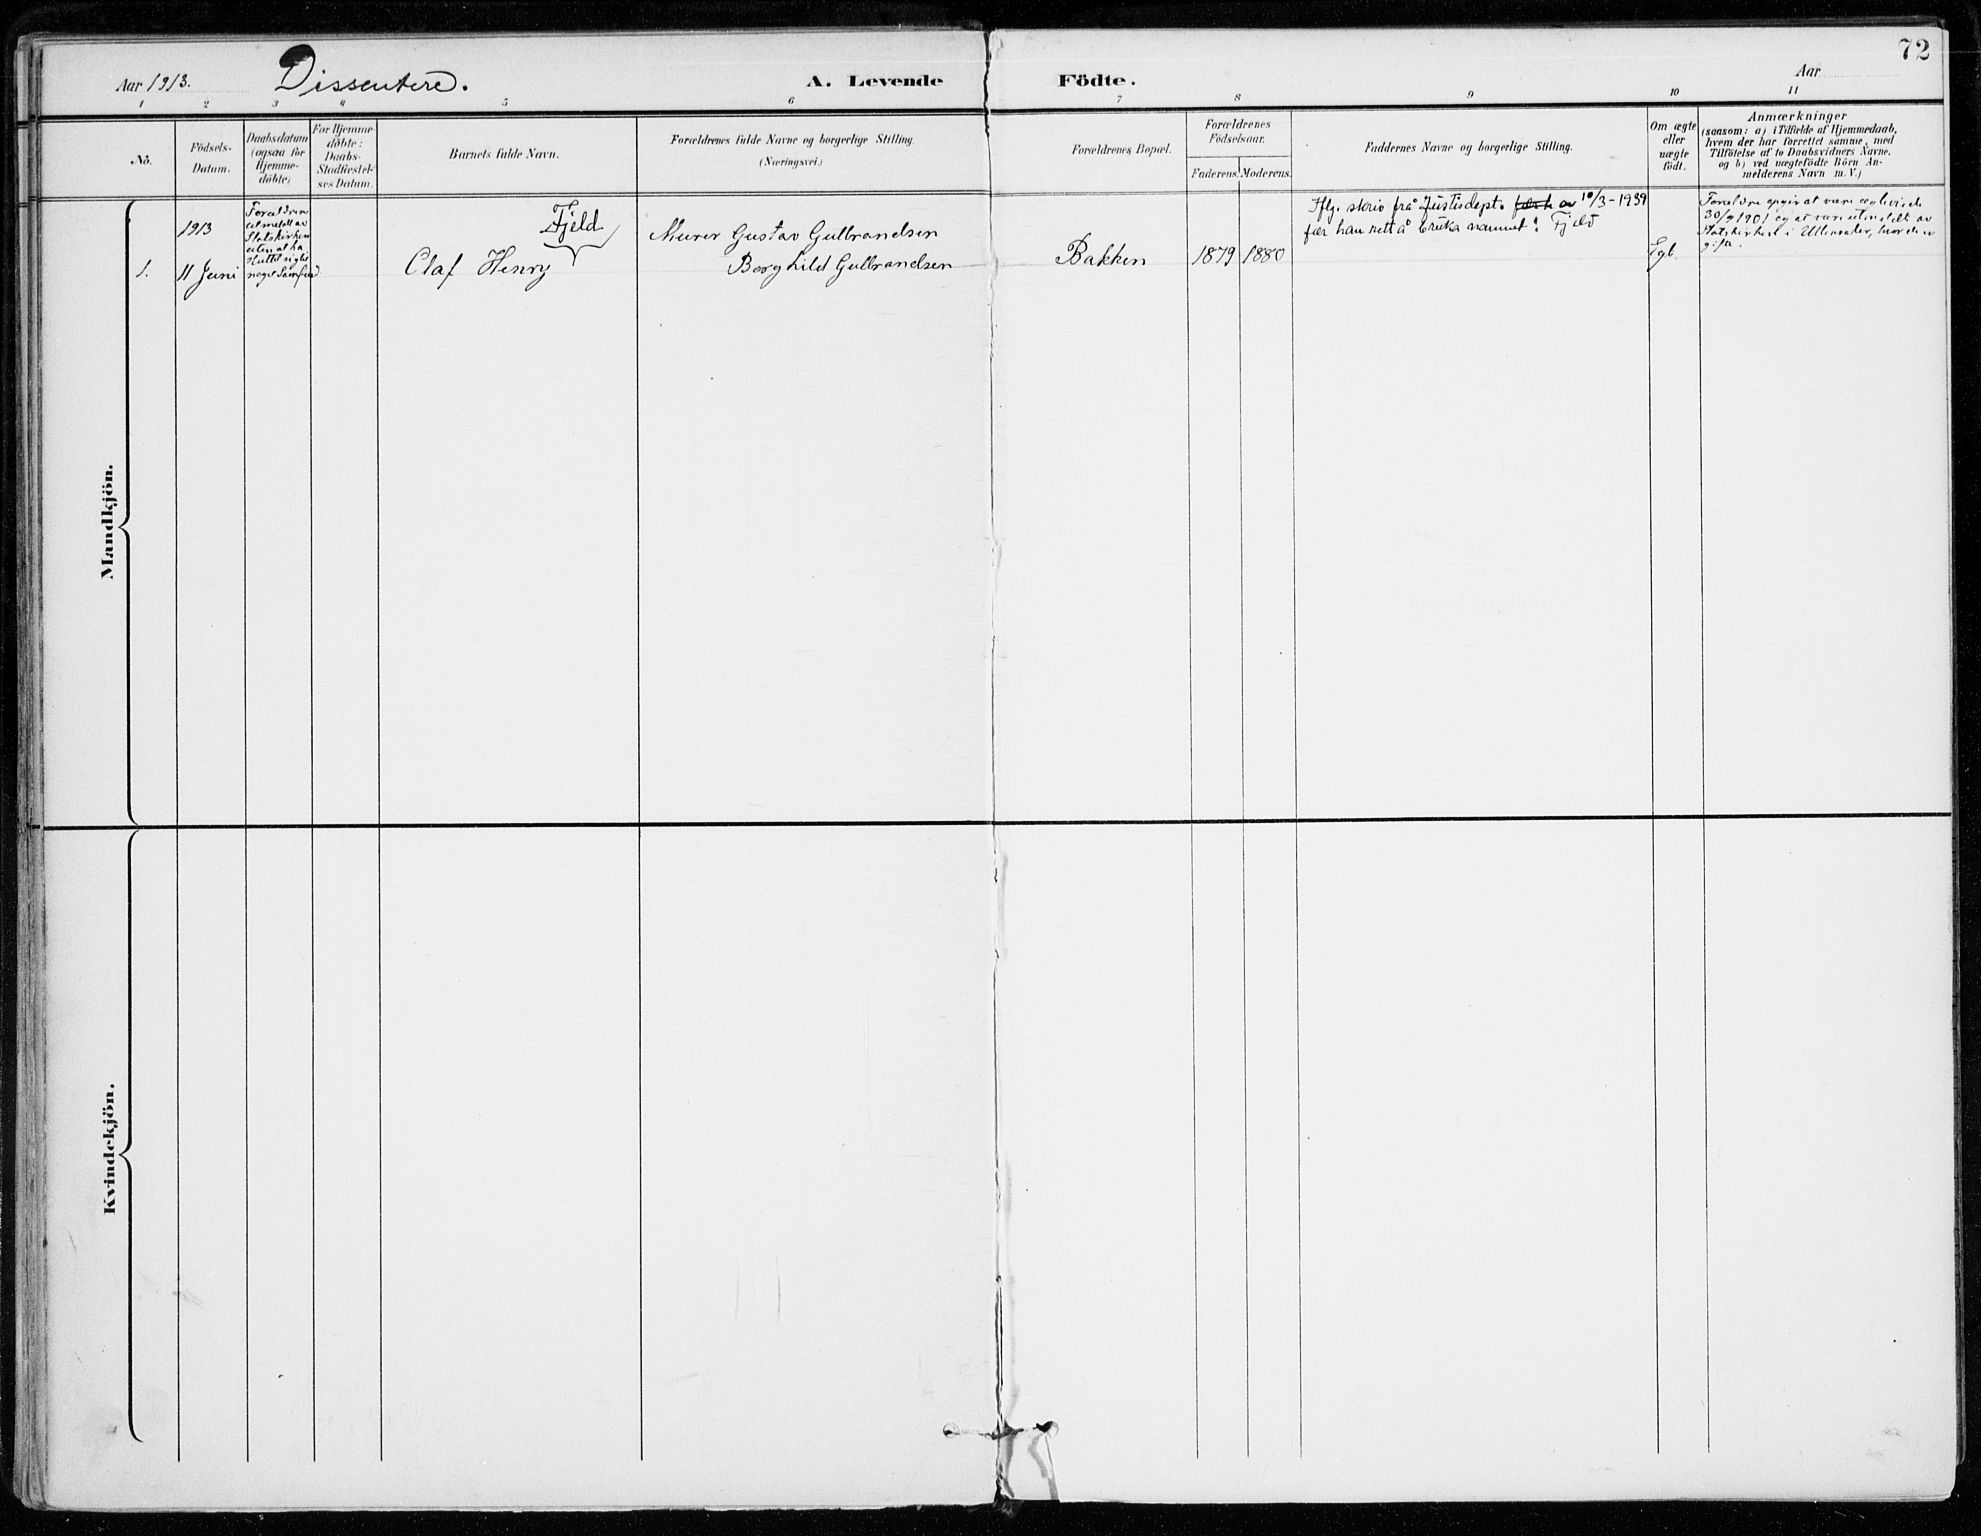 72
Aar 1913.
Dissentere.
A. Levende Födte.
Aar
1 2 3 4 5 6 7 8 9 10 11
No.
Födsels-
Datum.
Daabsdatum
(ogsaa for
Hjemme-
döbte)
For Hjemme-
döbte:
Daabs-
Stadfæstel-
ses Datum.
Barnets fulde Navn.
Forældrenes fulde Navne og borgerlige Stilling.
(Næringsvei.)
Forældrenes Bopæl.
Forældrenes
Födselsaar.
Faderens. Moderens.
Faddernes Navne og borgerlige Stilling.
Om ægte
eller
uægte
födt.
Anmærkninger
(saasom: a) i Tilfælde af Hjemmedaab,
hvem der har forrettet samme, med
Tilföielse af to Daabsvidners Navne.
og b) ved uægtefödte Börn An-
melderens Navn m. V.)
Mandkjön.
1.
1913
11 Juni
Forældren
utmeldt av
Statskirken
uten at ha
sluttet sig til
noget Samfund
Fjeld
Olaf Henry
Murer Gustav Gulbrandsen
Borghild Gulbrandsen
Bakken
1879
1880
Iflg. skriv frå Justisdept. 10/3-1939
fær han rett å bruka namnet: Fjeld
Egt.
Forældre opgir at være egteviede
30/9 1901 og at være utmeldt av
Statskirken i Ullensaker, hvor de er
gift.
Kvindekjön.